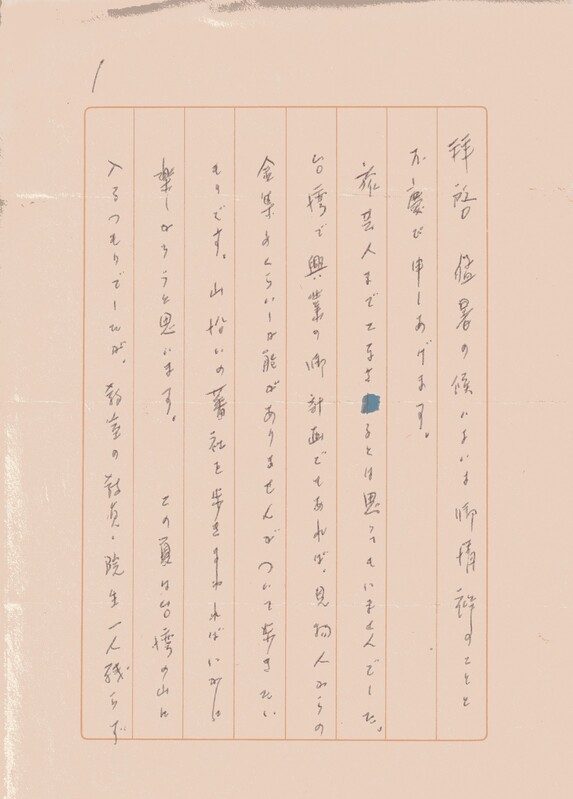 拝啓 猛暑の候いよいよ御清祥のことと
お慶び申しあげます。
旅芸人までなさるとは思ってもいませんでした。
台湾で興業の御計画でもあれば、見物人からの
金集めくらいしか能がありませんがついて歩きたい
ものです。山沿いの蕃社を歩きまわればいかに
楽しかろうと思います。 この夏は台湾の山に
入るつもりでしたが、教室の教員・院生一人残らず